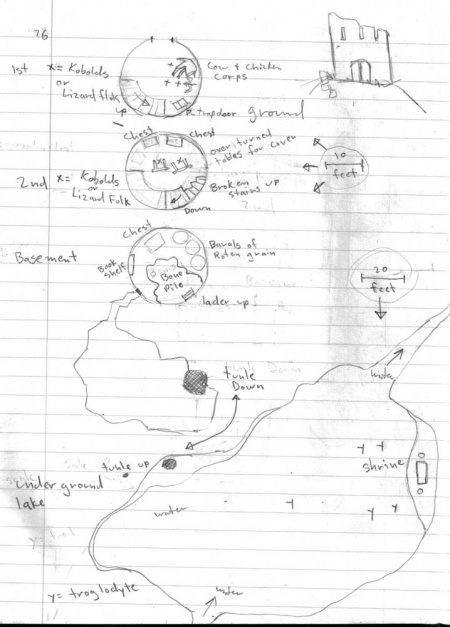 76
1st x= Kobolds
or
Lizard folk
Cow & Chicken
Corps
up
trapdoor ground
Chest chest
over turned
tables for cover
10
feet
2nd x= Kobolds
or
Lizard Folk
Broken
stairs up
Down
Chest
Basement
Burals of
Roten grain
Book
shelf
Bone
Pile
lader up
20
feet
tunle
Down
water
tunle up
shrine
under ground
lake
water
y y
y y y
y= troglodyte
water